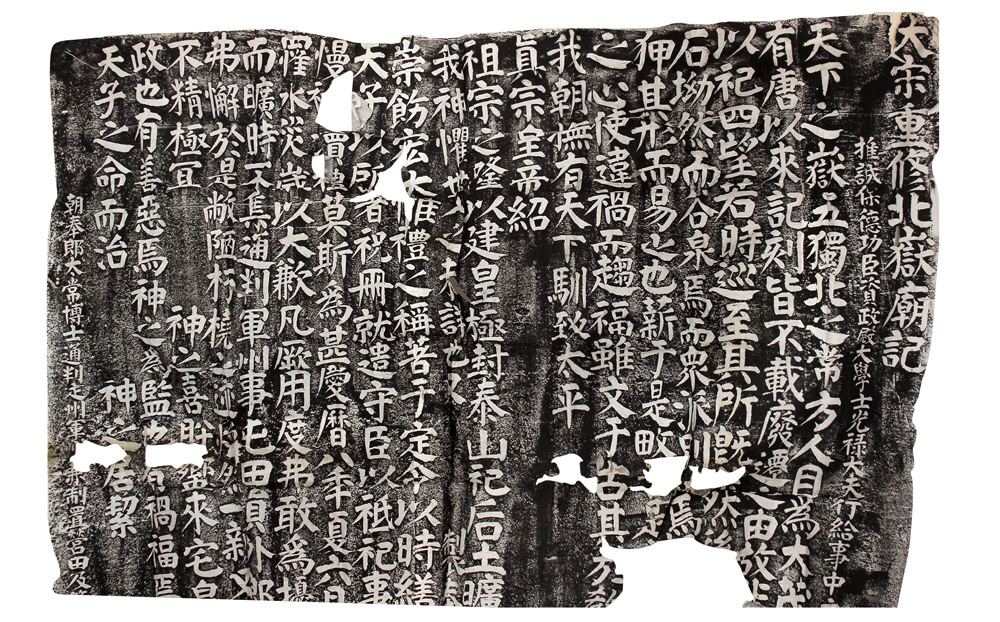 大宋重修北嶽廟記
推誠保德功臣資政殿大學士光祿大夫行給事中
天下之嶽五獨北之常方人自爲大茂
有唐以來記刻皆不載廢遷之由故
以祀四望若時巡至其所旣然
石坳然而合泉焉而衆派別焉
狎其形而易之也蘄于是畋是
之心使違禍而趨福雖文于古其
我朝憮有天下馴致太平
眞宗皇帝紹
祖宗之隆以建皇極封泰山祀后土曠
我神懼之未也又
崇飭宏大惟禮之稱著于定令以時繕
天子以所署祝冊就遣守臣以祗祀事
慢神禮莫斯爲甚慶曆八年夏六月
罹水災歲以大歉凡厥用度弗敢爲擾
而曠時不葺通判軍州事屯田員外郎
弗懈於是敝陋朽橈之迹煥然一新
不精極亘 神之喜肸蠁來宅
政也有善惡焉神之爲監也禍福焉
天子之命而治 神之居絜
朝奉郎太常博士通判定州軍制置營田及